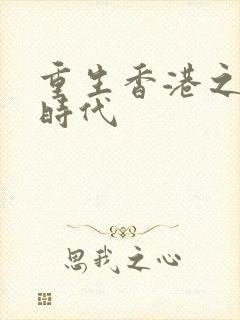 重生香港之
時代
思我之心